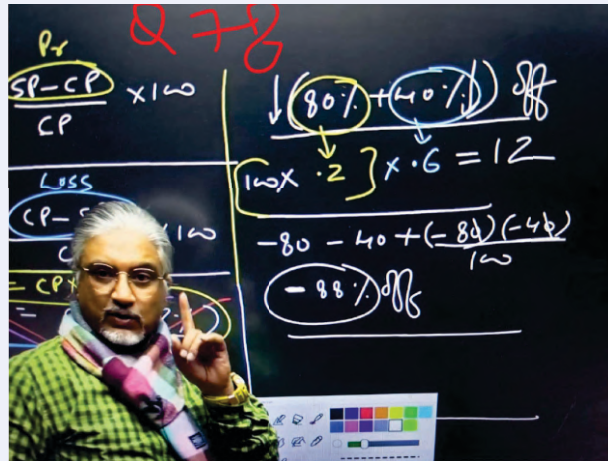 Q 78
Pr
SP-CP
CP
×100
Loss
CP-S
C
×100
= CP×
↓(80% + 40%↓) off
[100× .2] × .6 = 12
-80 -40 + (-80)(-40)
100
-88% off